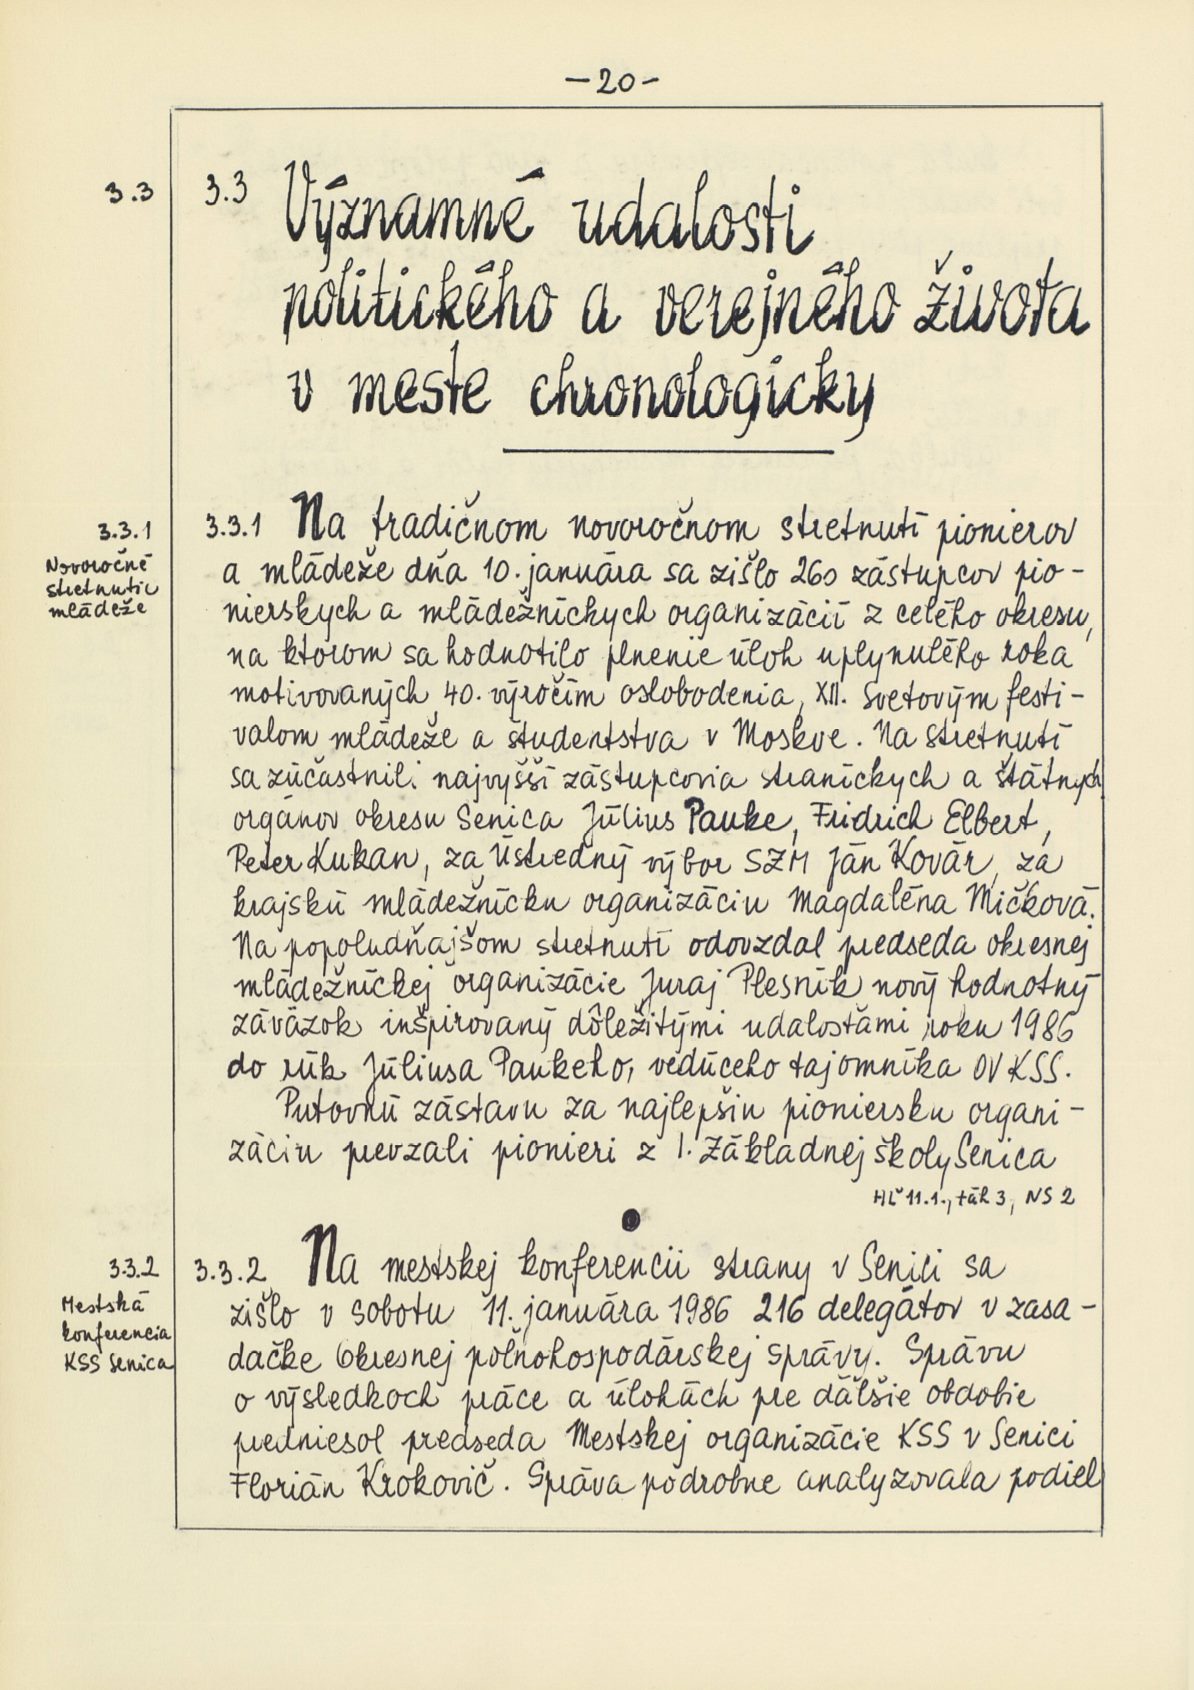 -20-
3.3
3.3 Významné udalosti
politického a verejného života
v meste chronologicky
3.3.1
Novoročné
stretnutie
mládeže
3.3.1 Na tradičnom novoročnom stretnutí pionierov
a mládeže dňa 10. januára sa zišlo 260 zástupcov pio-
nierskych a mládežníckych organizácií z celého okresu,
na ktorom sa hodnotilo plnenie úloh uplynulého roka
motivovaných 40. výročím oslobodenia, XII. Svetovým festi-
valom mládeže a študentstva v Moskve. Na stretnutí
sa zúčastnili najvyšší zástupcovia straníckych a štátnych
orgánov okresu Senica Július Pauke, Fridrich Elbert,
Peter Kukan, za Ústredný výbor SZM Ján Kovár, za
krajskú mládežnícku organizáciu Magdaléna Mičková.
Na popoludňajšom stretnutí odovzdal predseda okresnej
mládežníckej organizácie Juraj Plesník nový hodnotný
záväzok inšpirovaný dôležitými udalosťami roku 1986
do rúk Júliusa Paukeho, vedúceho tajomníka OV KSS.
Putovnú zástavu za najlepšiu pioniersku organi-
záciu prevzali pionieri z I. Základnej školy Senica
HĽ 11.1., ťah 3, NS 2
3.3.2
Mestská
konferencia
KSS Senica
3.3.2 Na mestskej konferencii strany v Senici sa
zišlo v sobotu 11. januára 1986 216 delegátov v zasa-
dačke Okresnej poľnohospodárskej správy. Správu
o výsledkoch práce a úlohách pre ďalšie obdobie
predniesol predseda Mestskej organizácie KSS v Senici
Florián Krokovič. Správa podrobne analyzovala podiel